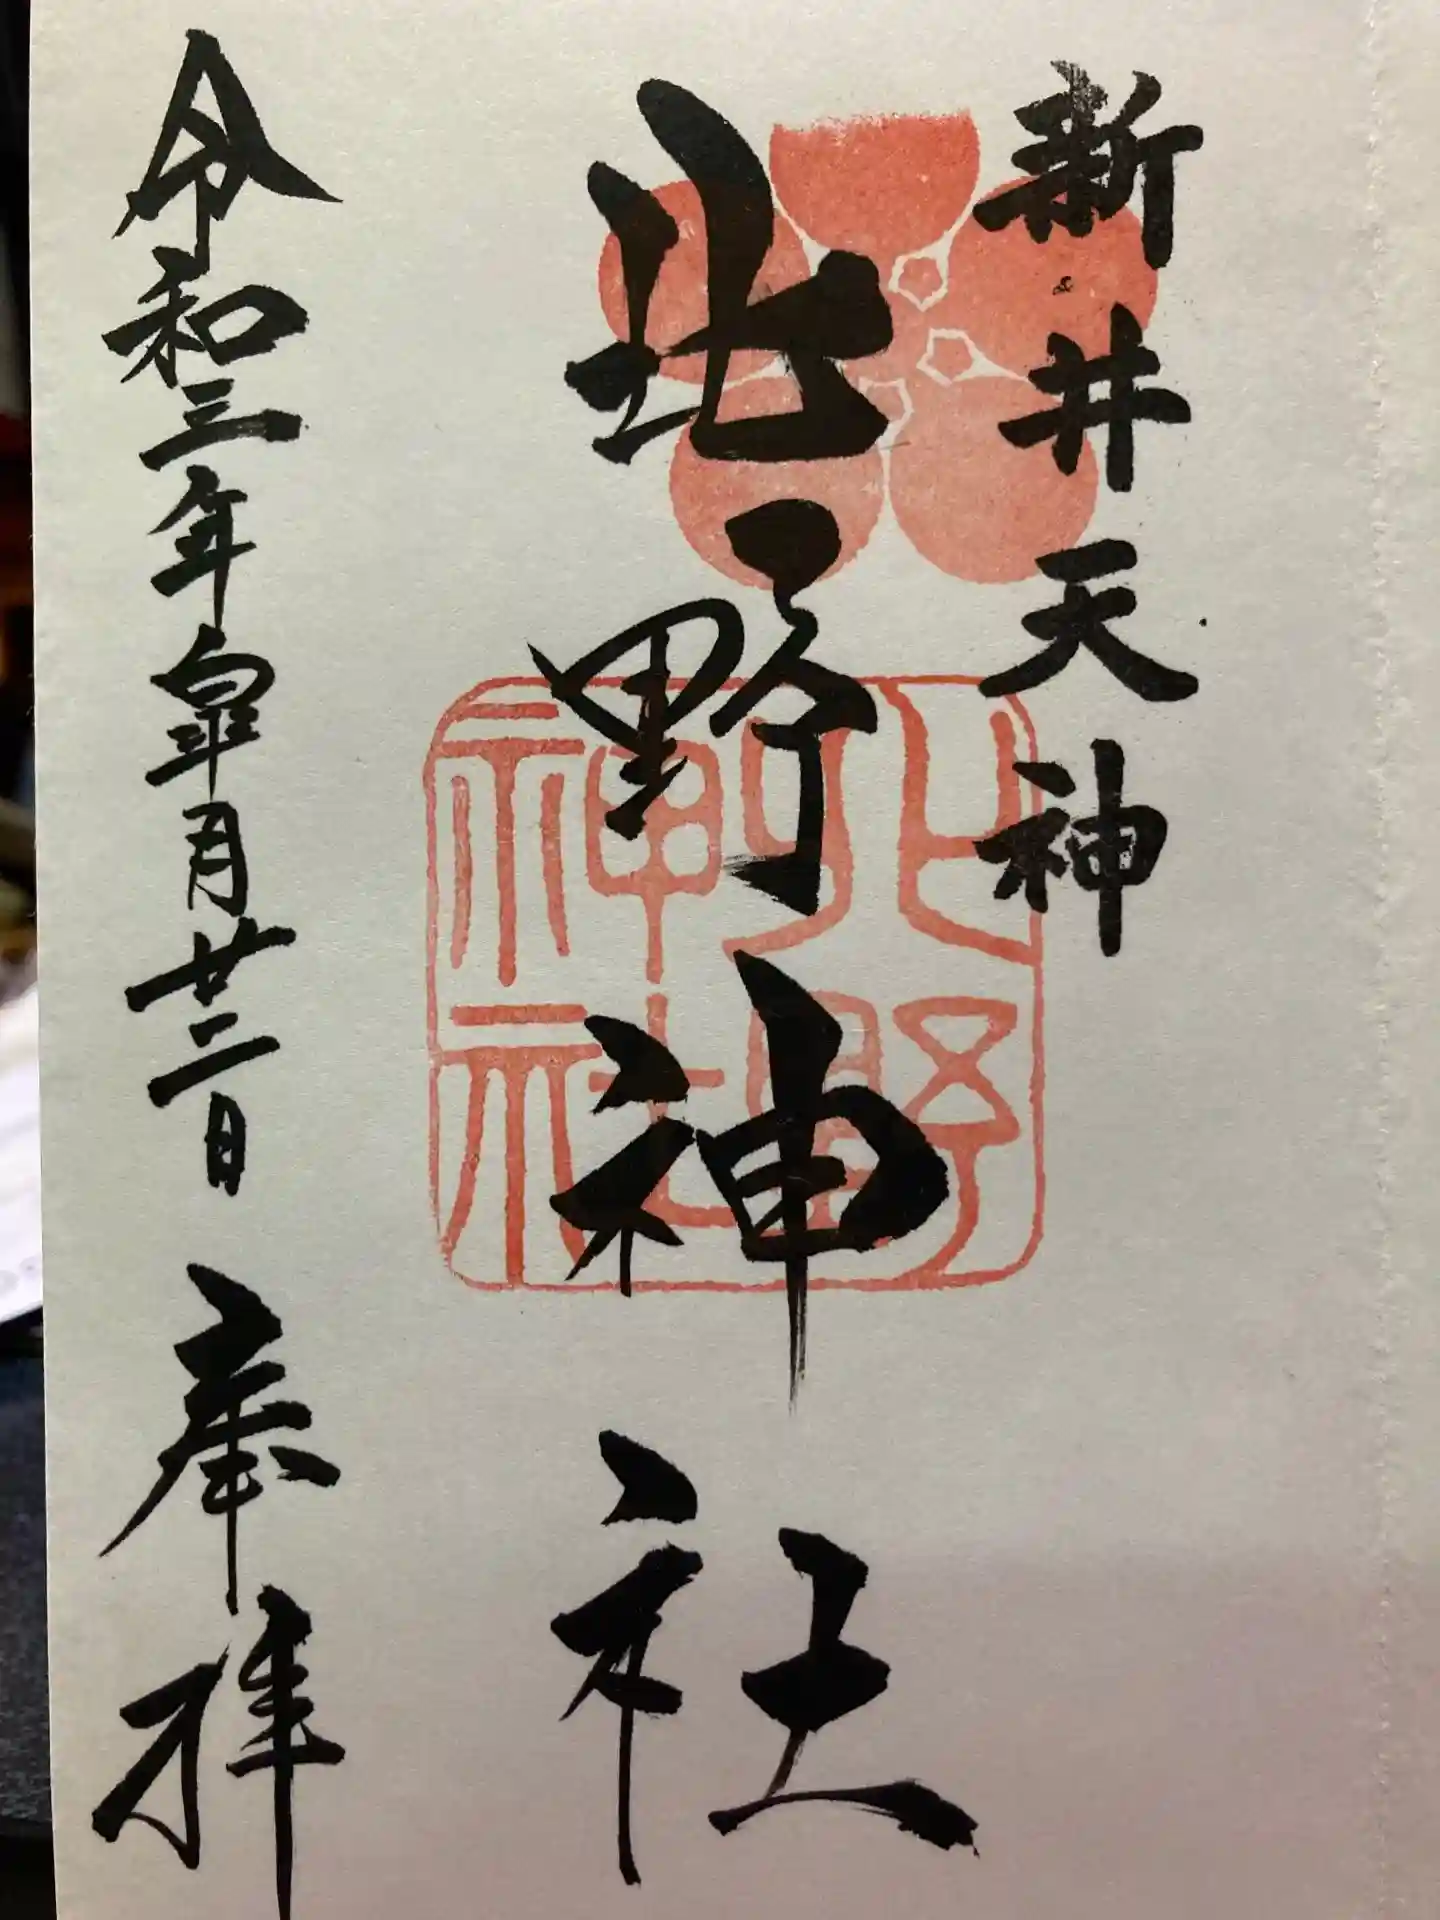 新井天神
北野神社
北野
神社
令和三年皐月廿二日 奉拝